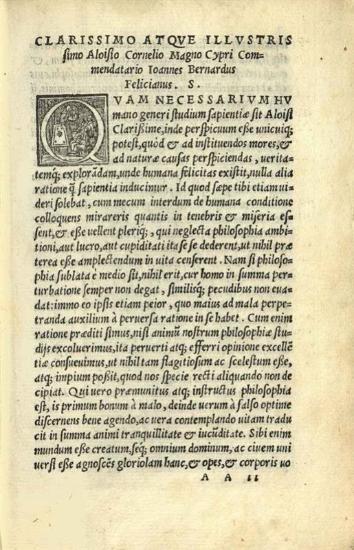 CLARISSIMO ATQVE ILLVSTRIS
simo Aloisio Cornelio Magno Cypri Com=
mendatario Ioannes Bernardus
Felicianus. S.
QVAM NECESSARIVM HV
mano generi studium sapientiæ sit Aloisi
Clarißime, inde perspicuum eße unicuiq;
potest, quòd & ad instituendos mores, &
ad naturæ causas perspiciendas, uerita=
temq; explorandam, unde humana felicitas existit, nulla alia
ratione q̃ sapientia inducimur. Id quod sæpe tibi etiam ui
deri solebat, cum mecum interdum de humana conditione
colloquens mirareris quantis in tenebris & miseria es=
sent, & eße uellent pleriq;, qui neglecta philosophia ambi=
tioni, aut lucro, aut cupiditati ita se se dederent, ut nihil præ
terea eße amplectendum in uita censerent. Nam si philoso=
phia sublata è medio sit, nihil erit, cur homo in summa per=
turbatione semper non degat, similisq; pecudibus non eua
dat: immo eo ipsis etiam peior, quo maius ad mala perpe=
tranda auxilium à peruersa ratione in se habet. Cum enim
ratione præditi simus, nisi animũ nostrum philosophiæ stu=
dijs excoluerimus, ita peruerti atq; efferri opinione excellẽ
tiæ consueuimus, ut nihil tam flagitiosum ac scelestum eße,
atq; impium poßit, quod nos specie recti aliquando non de
cipiat. Qui uero præmunitus atq; instructus philosophia
est, is primum bonum à malo, deinde uerum à falso optime
discernens bene agendo, ac uera contemplando uitam tradu
cit in summa animi tranquillitate & iucũditate. Sibi enim
mundum eße creatum, seq; omnium dominum, ac ciuem uni
uersi eße agnoscẽs gloriolam hanc, & opes, & corporis uo
A A ii